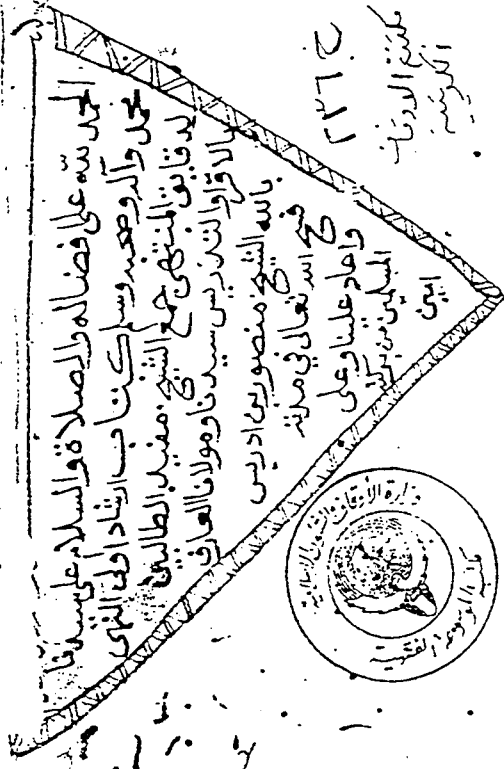 الحمد لله على افضاله والصلاة والسلام على سيدنا
محمد وآله وصحبه وسلم كتاب ارشاد أولى النهى
لدقايق المنتهى جمع الشيخ مفيد الطالبين
بالاقرا والتدريس سيدنا ومولانا العارف
بالله الشيخ منصور بن ادريس
فسح الله تعالى في مدته
واعاد علينا وعلى
المسلمين من بركته
امين
ج ٢٣٦
مكتبة الاوقاف
الكويتية
وزارة الأوقاف والشئون الاسلامية
مكتبة الموسوعة الفقهية